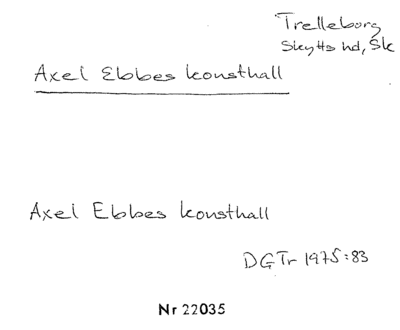 Trelleborg
Skytts hd, Sk
Axel Ebbes konsthall
Axel Ebbes konsthall
DGTr 1975:83
Nr 22035